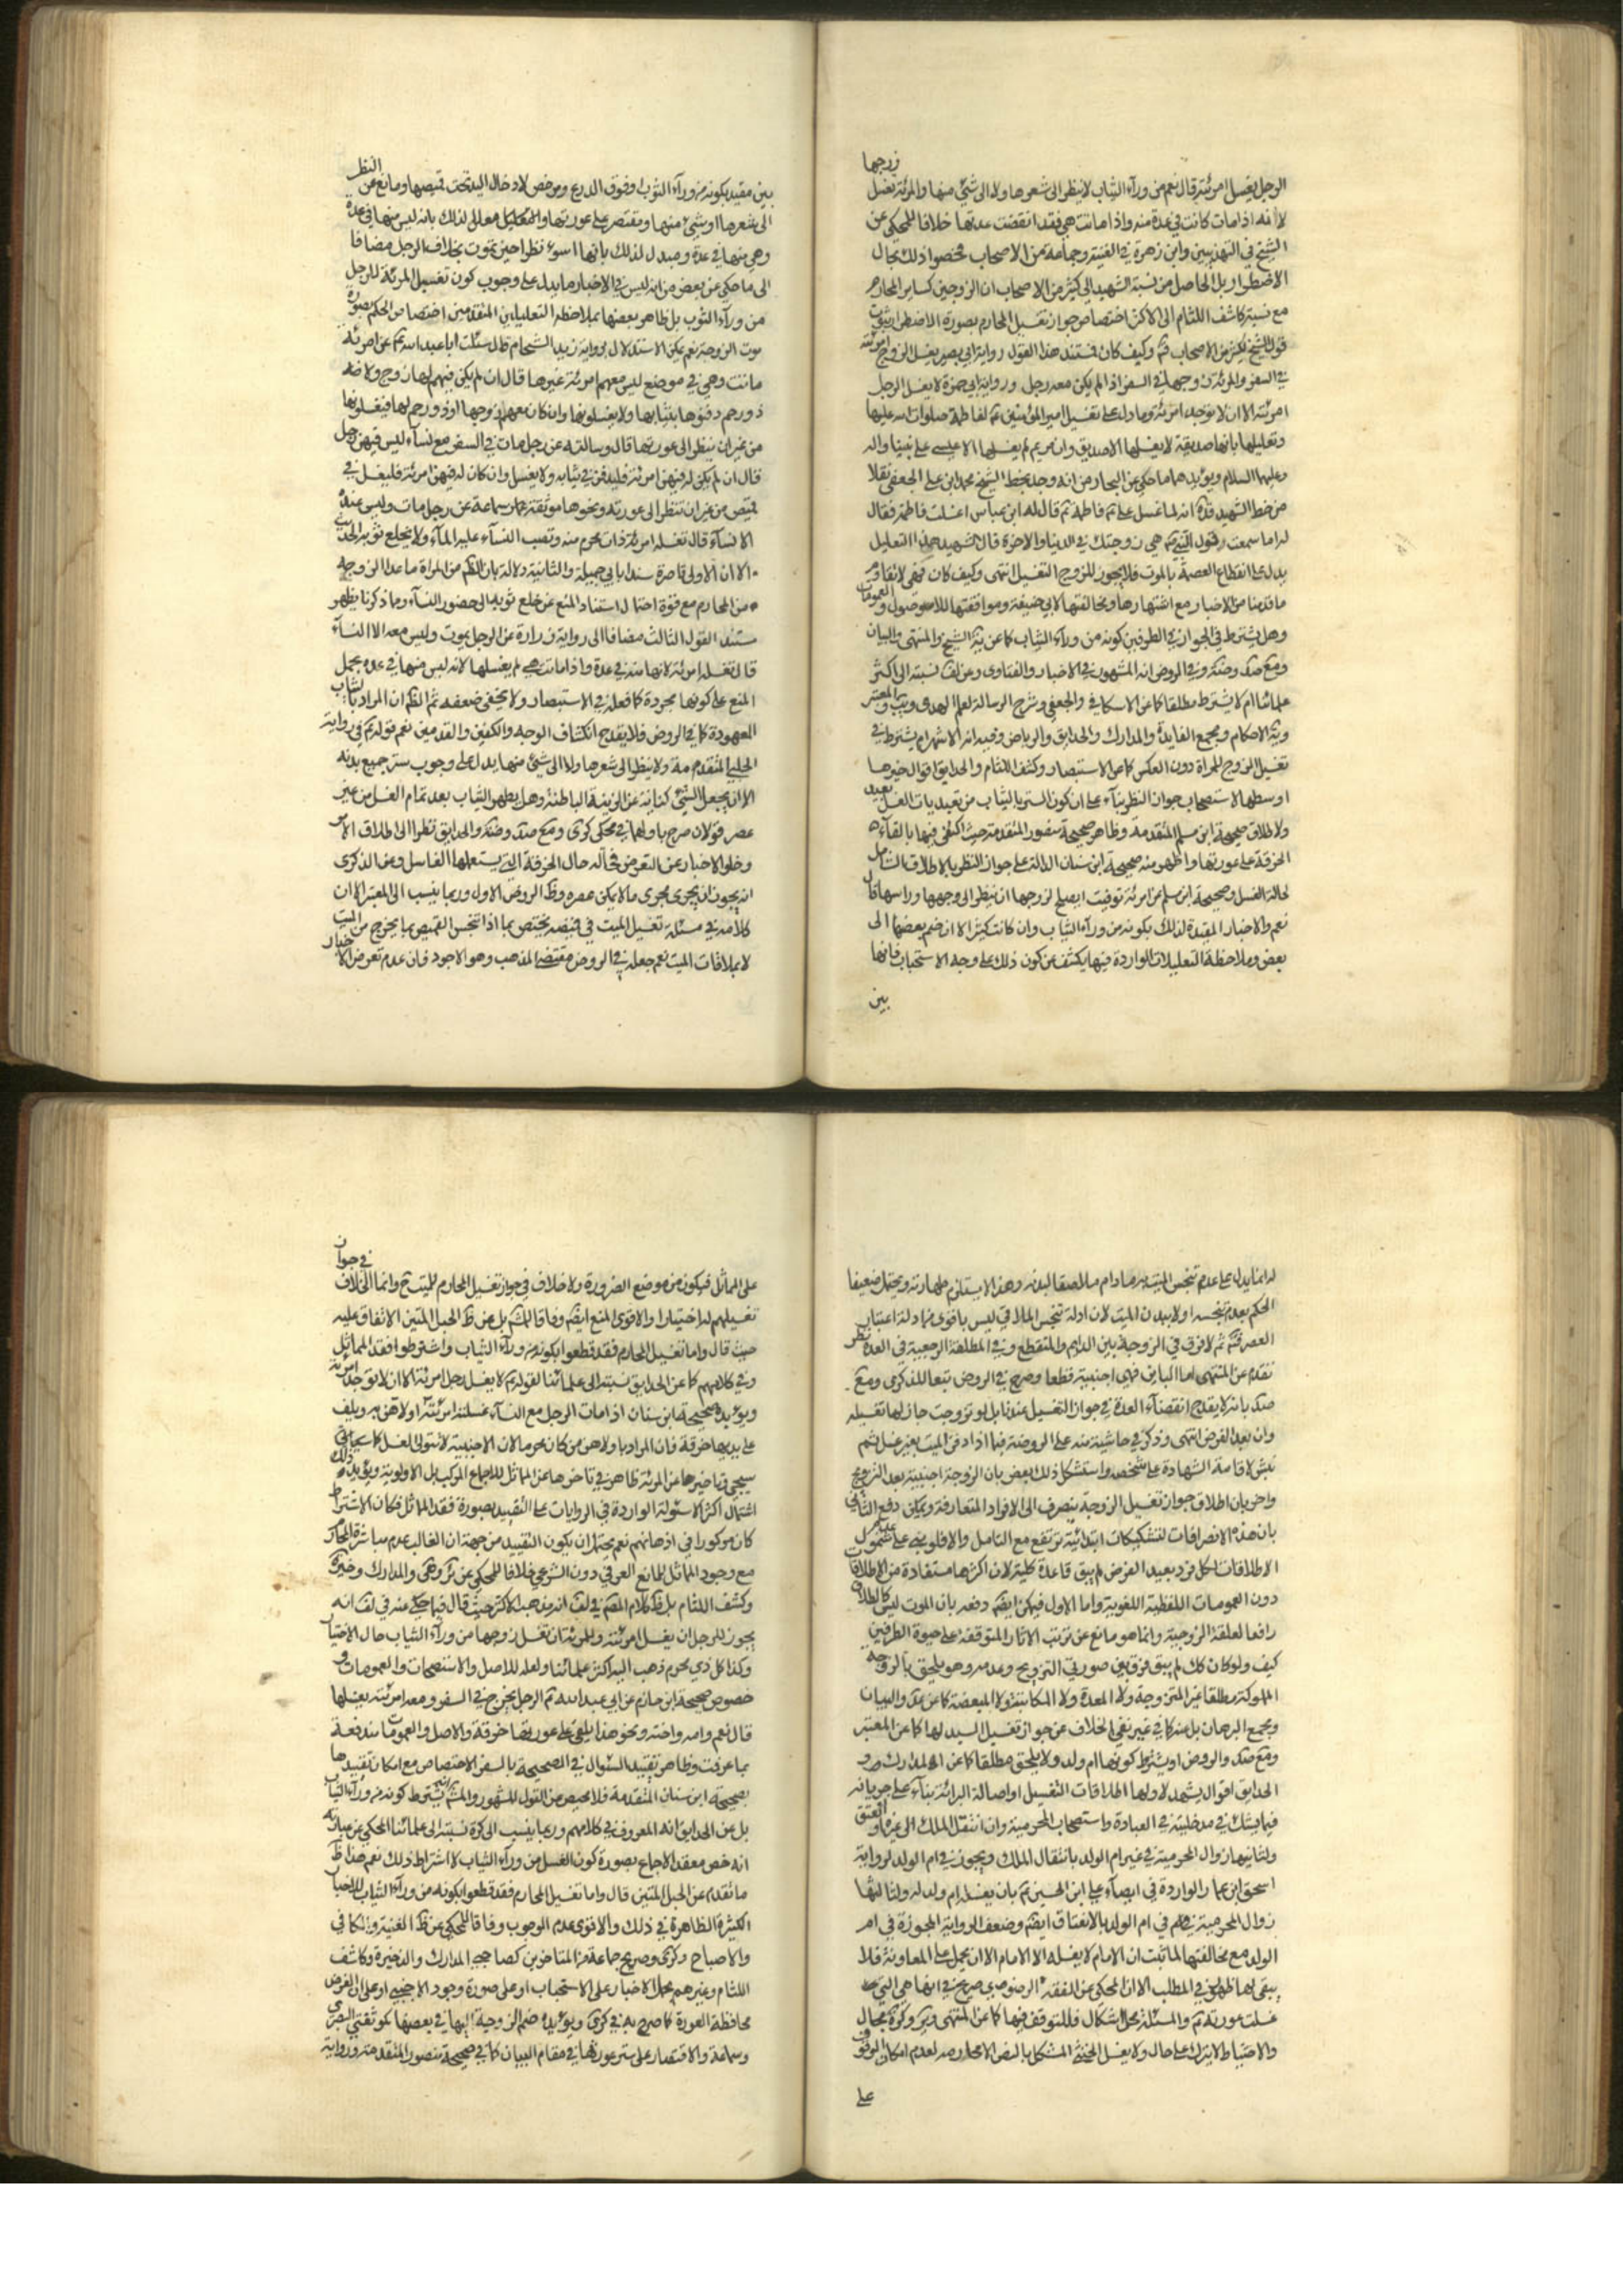 زوجها
الرجل يغسل امرئته قال نعم من ورآء الثياب لا ينظر الى شعرها ولا الى شئ منها والمرئة تغسل
لانه اذا مات كانت في عدة منه واذا ماتت هي فقد انقضت عدتها خلافا للمحكي عن
الشيخ في التهذيبين وابن زهرة في الغنية وجماعة من الاصحاب فخصوا ذلك بحال
الاضطرار بل الحاصل من نسبة الشهيد الى كثير من الاصحاب ان الزوجين كساير المحارم
مع نسبة كاشف اللثام الى الاكثر اختصاص جواز تغسيل المحارم بصورة الاضطرار ثبوت
قول الشيخ لكثير من الاصحاب وكيف كان فمستند هذا القول رواية ابي بصير يغسل الزوج امرئته
في السفر والمرئة زوجها في السفر اذا لم يكن معه رجل ورواية ابي حمزة لا يغسل الرجل
امرئته الا ان لا توجد امرئة وما دل على تغسيل امير المؤمنين لفاطمة صلوات الله عليها
وتعليلها بانها صديقة لا يغسلها الا صديق وان مريم لم يغسلها الا عيسى على نبينا واله
وعليهما السلام ويؤيدهما ما حكي عن البحار من انه وجد بخط الشيخ محمد ابن علي الجعفي نقلا
من خط الشهيد قده انه لما غسل علي فاطمة قال له ابن عباس اغسلت فاطمة فقال
له اما سمعت قول النبي هي زوجتك في الدنيا والاخرة قال الشهيد هذا التعليل
يدل على انقطاع العصمة بالموت فلا يجوز للزوج التغسيل انتهى وكيف كان فهي لا تقاوم
ما قدمنا من الاخبار مع اشتهارها ومخالفتها لابي حنيفة وموافقتها للاصول والعمومات
وهل يشترط في الجواز في الطرفين كونه من ورآء الثياب كما عن الشيخ والمنتهى والبيان
وفي الروض انه المشهور في الاخبار والفتاوى وعن لف نسبته الى اكثر
علمائنا ام لا يشترط مطلقا كما عن الاسكافي والجعفي وشرح الرسالة لعلم الهدى والمعتبر
ونهاية الاحكام ومجمع الفايدة والمدارك والحدايق والرياض وفيه انه الاشهر ام يشترط في
تغسيل الزوج للمراة دون العكس كما عن الاستبصار وكشف اللثام والحدايق اقوال خيرها
اوسطها لاستصحاب جواز النظر بناء على ان كون الستر بالثياب من تعبديات الغسل بعيد
ولاطلاق صحيحة ابن مسلم المتقدمة وظاهر صحيحة منصور المتقدمة حيث اكتفي فيها بالقآء
الخرقة على عورتها واظهر منه صحيحة ابن سنان الدالة على جواز النظر بالاطلاق الشامل
لحالة الغسل وصحيحة ابن مسلم عن امرئة توفيت ايصلح لزوجها ان ينظر الى وجهها وراسها قال
نعم والاخبار المقيدة لذلك بكونه من ورآء الثياب وان كانت كثيرة الا ان ضم بعضها الى
بعض وملاحظة التعليلات الواردة فيها يكشف عن كون ذلك على وجه الاستحباب فانها
بين
بين مقيد بكونه من ورآء الثوب او فوق الدرع ومرخص لادخال اليد تحت قميصها ومانع عن النظر
الى شعرها او شئ منها ومقتصر على عورتها والتعليل معلل لذلك بانه ليس منها في عدة
وهي منه في عدة ومبدل لذلك بانها اسوء نظرا حين تموت بخلاف الرجل مضافا
الى ما حكي عن بعض من انه ليس في الاخبار ما يدل على وجوب كون تغسيل المرئة للرجل
من ورآء الثوب بل ظاهر بعضها بملاحظة التعليلين المتقدمين اختصاص الحكم بصورة
موت الزوجة نعم يمكن الاستدلال برواية زيد الشحام قال سئلت ابا عبد الله عن امرئة
ماتت وهي في موضع ليس معهم امرئة غيرها قال ان لم يكن فيهم لها زوج ولا
ذو رحم دفنوها بثيابها ولا يغسلونها وان كان معهم زوجها او ذو رحم لها فيغسلونها
من غير ان ينظر الى عورتها قال وسالته عن رجل مات في السفر مع نسآء ليس فيهن رجل
قال ان لم يكن له فيهن امرئة فليدفن في ثيابه ولا يغسل وان كان له فيهن امرئة فليغسل في
قميص من غير ان تنظر الى عورته ونحوها موثقة سماعة عن رجل مات وليس عنده
الا نسآء قال تغسله امرئة ذات محرم منه وتصب النسآء عليه المآء ولا يخلع ثوبه الحديث
الا ان الاولى قاصرة سندا بابي جميلة والثانية دلالة بان الظاهر من المراة ما عدا الزوجة
من المحارم مع قوة احتمال استناد المنع عن خلع ثوبه الى حضور النسآء وما ذكرنا يظهر
مستند القول الثالث مضافا الى رواية زرارة عن الرجل يموت وليس معه الا النسآء
قال تغسله امرئته لانها منه في عدة واذا ماتت هي لم يغسلها لانه ليس منها في عدة بحمل
المنع على كونها مجردة كما فعله في الاستبصار ولا يخفى ضعفه ثم الظاهر ان المراد بالثياب
المعهودة كما في الروض فلا يقدح انكشاف الوجه والكفين والقدمين نعم قوله في رواية
الحلبي المتقدمة ولا ينظر الى شعرها ولا الى شئ منها يدل على وجوب ستر جميع بدنه
الا ان يجعل الشئ كناية عن الزينة الباطنة وهل يطهر الثياب بعد تمام الغسل من غير
عصر قولان صرح باولهما في محكي كرى نظرا الى اطلاق الامر
وخلو الاخبار عن التعرض له حال الخرقة التي يستعملها الغاسل وعن الذكرى
انه يجوز ان يجري مجرى ما لا يمكن عصره وظ الروض الاول وربما ينسب الى المعتبر الا ان
كلامه في مسئلة تغسيل الميت في قميصه يختص بما اذا نجس القميص بما يخرج من الميت
لا بملاقات الميت نعم جعله في الروض مقتضى المذهب وهو الاجود فان عدم تعرض الاخبار
له انما يدل على عدم تنجس الميت به ما دام ملاصقا لبدنه وهذا لا يستلزم طهارته ويحتمل ضعيفا
الحكم بعدم تنجسه اولا ببدن الميت لان ادلة تنجس الملاقي ليس باقوى من ادلة اعتبار
العصر ثم لا فرق في الزوجة بين الدايم والمنقطع وفي المطلقة الرجعية في العدة نظر
تقدم عن المنتهى اما الباين فهي اجنبية قطعا وصرح في الروض تبعا للذكرى ومع
صد بانه لا يقدح انقضآء العدة في جواز التغسيل عندنا بل لو تزوجت جاز لها تغسيله
وان بعد الفرض انتهى وذكر في حاشية منه على الروضة فيما اذا دفن الميت بغير غسل ثم
نبش لاقامة الشهادة على شخصه واستشكل ذلك بعض بان الزوجة اجنبية بعد التزويج
واخر بان اطلاق جواز تغسيل الزوجة ينصرف الى الافراد المتعارفة ويمكن دفع الثاني
بان هذه الانصرافات لتشكيكات ابتدائية ترتفع مع التامل والا فلو بني على عدم شمول
الاطلاقات لكل فرد بعيد الفرض لم يبق قاعدة كلية لان اكثرها مستفادة من الاطلاقات
دون العمومات اللفظية اللغوية واما الاول فيمكن ايضا دفعه بان الموت ليس كالطلاق
رافعا لعلقة الزوجية وانما هو مانع عن ترتب الاثار المتوقفة على حيوة الطرفين
كيف ولو كان كك لم يبق فرق بين صورتي التزويج وعدمه وهو يلحق بالزوجة
المملوكة مطلقا غير المتزوجة ولا المعدة ولا المكاتبة ولا المبعضة كما عن والبيان
ومجمع البرهان بل عنه كما في غيره نفي الخلاف عن جواز تغسيل السيد لها كما عن المعتبر
ومع صد والروض او يشترط كونها ام ولد ولا يلحق مطلقا كما عن المدارك
الحدايق اقوال يشهد لاولها اطلاقات التغسيل واصالة البرائة بناء على جريانه
فيما يشك في مدخليته في العبادة واستصحاب المحرمية وان انتقل الملك الى غيره او العتق
ولثانيها زوال المحرمية في غير ام الولد بانتقال الملك ويجوز في ام الولد لرواية
اسحق ابن عمار الواردة في ايصآء علي ابن الحسين بان يغسله ام ولد له ولثالثها
زوال المحرمية في ام الولد بالانعتاق ايضا وضعف الرواية المجوزة في ام
الولد مع مخالفتها لما ثبت ان الامام لا يغسله الا الامام الا ان يحمل على المعاونة فلا
يبقى لها ظهور في المطلب الا ان المحكي عن الفقه الرضوي صريح في انها هي التي
غسلت عورته والمسئلة محل اشكال فللتوقف فيها كما عن المنتهى مجال
والاحتياط لا يترك على حال ولا يغسل الخنثى المشكل بالنص الا محارمه لعدم امكان الوقوف
على
على المماثل فيكون من موضع الضرورة ولا خلاف في جواز تغسيل المحارم للميت ح وانما الخلاف في جواز
تغسيلهم له اختيارا والاقوى المنع ايضا وفاقا بل عن ظ الحبل المتين الاتفاق عليه
حيث قال واما تغسيل المحارم فقد قطعوا بكونه من ورآء الثياب واشترطوا فقد المماثل
وفي كلامهم كما عن الحدايق نسبته الى علمائنا لقوله لا يغسل رجل امرئة الا ان لا توجد امرئة
ويؤيده صحيحة ابن سنان اذا مات الرجل مع النسآء غسلته امرئته او اولاهن به ويلف
على يديها خرقة فان المراد باولاهن من كان محرما لان الاجنبية لا تتولى الغسل كما سيجئ
في تاخيرها عن المرئة ظاهر في تاخرها عن المماثل للاجماع المركب بل الاولوية ويؤيد ذلك
اشتمال اكثر الاسئولة الواردة في الروايات على التقييد بصورة فقد المماثل فكان الاشتراط
كان مركوزا في اذهانهم نعم يحتمل ان يكون التقييد من جهة ان الغالب عدم مباشرة المحارم
مع وجود المماثل للمانع العرفي دون الشرعي خلافا للمحكي عن والمدارك وخيرة
وكشف اللثام بل ظ كلام المصنف في لف انه مذهب الاكثر حيث قال فيما حكي عنه في لف انه
يجوز للرجل ان يغسل امرئته وللمرئة ان تغسل زوجها من ورآء الثياب حال الاختيار
وكذا كل ذي محرم ذهب اليه اكثر علمائنا ولعله للاصل والاستصحاب والعمومات و
خصوص صحيحة ابن حازم عن ابي عبد الله الرجل يخرج في السفر ومعه امرئته يغسلها
قال نعم وامه واخته ونحو هذا يلقى على عورتها خرقة والاصل والعمومات مندفعة
بما عرفت وظاهر تقييد السئوال في الصحيحة بالسفر الاختصاص مع امكان تقييدها
بصحيحة ابن سنان المتقدمة فلا محيص عن القول المشهور والمشهور انه يشترط كونه من ورآء الثياب
بل عن الحدايق انه المعروف في كلامهم وربما ينسب الى كرة نسبته الى علمائنا المحكي عن عبارته
انه خص معقد الاجماع بصورة كون الغسل من ورآء الثياب لا اشتراط ذلك نعم هذا ظ
ما تقدم عن الحبل المتين قال واما تغسيل المحارم فقد قطعوا بكونه من ورآء الثياب للاخبار
الكثيرة الظاهرة في ذلك والاقوى عدم الوجوب وفاقا للمحكي عن ظ الغنية والكافي
والاصباح وكرى وصريح جماعة من المتاخرين كصاحبي المدارك والذخيرة وكاشف
اللثام وغيرهم بحمل الاخبار على الاستحباب او على صورة وجود الاجنبي او على ان الغرض
محافظة العورة كما صرح به في كرى ويؤيده ضم الزوجة اليها في بعضها كموثقتي البصري
وسماعة والاقتصار على ستر عورتها في مقام البيان كما في صحيحة منصور المتقدمة ورواية